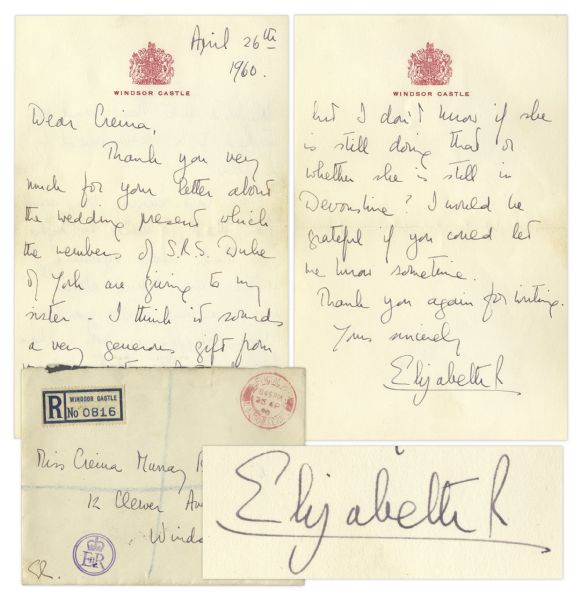 April 26th
1960.
WINDSOR CASTLE
Dear Creina,
Thank you very
much for your letter about
the wedding present which
the members of S.R.S. Duke
of York are giving to my
sister - I think it sounds
a very generous gift from
WINDSOR CASTLE
but I don't know if she
is still doing that or
whether she is still in
Devonshire? I would be
grateful if you could let
me know sometime.
Thank you again for writing.
Yours sincerely
Elizabeth R
R WINDSOR CASTLE
No 0816
Miss Creina Murray
12 Clewer
EIIR
ER.
Elizabeth R